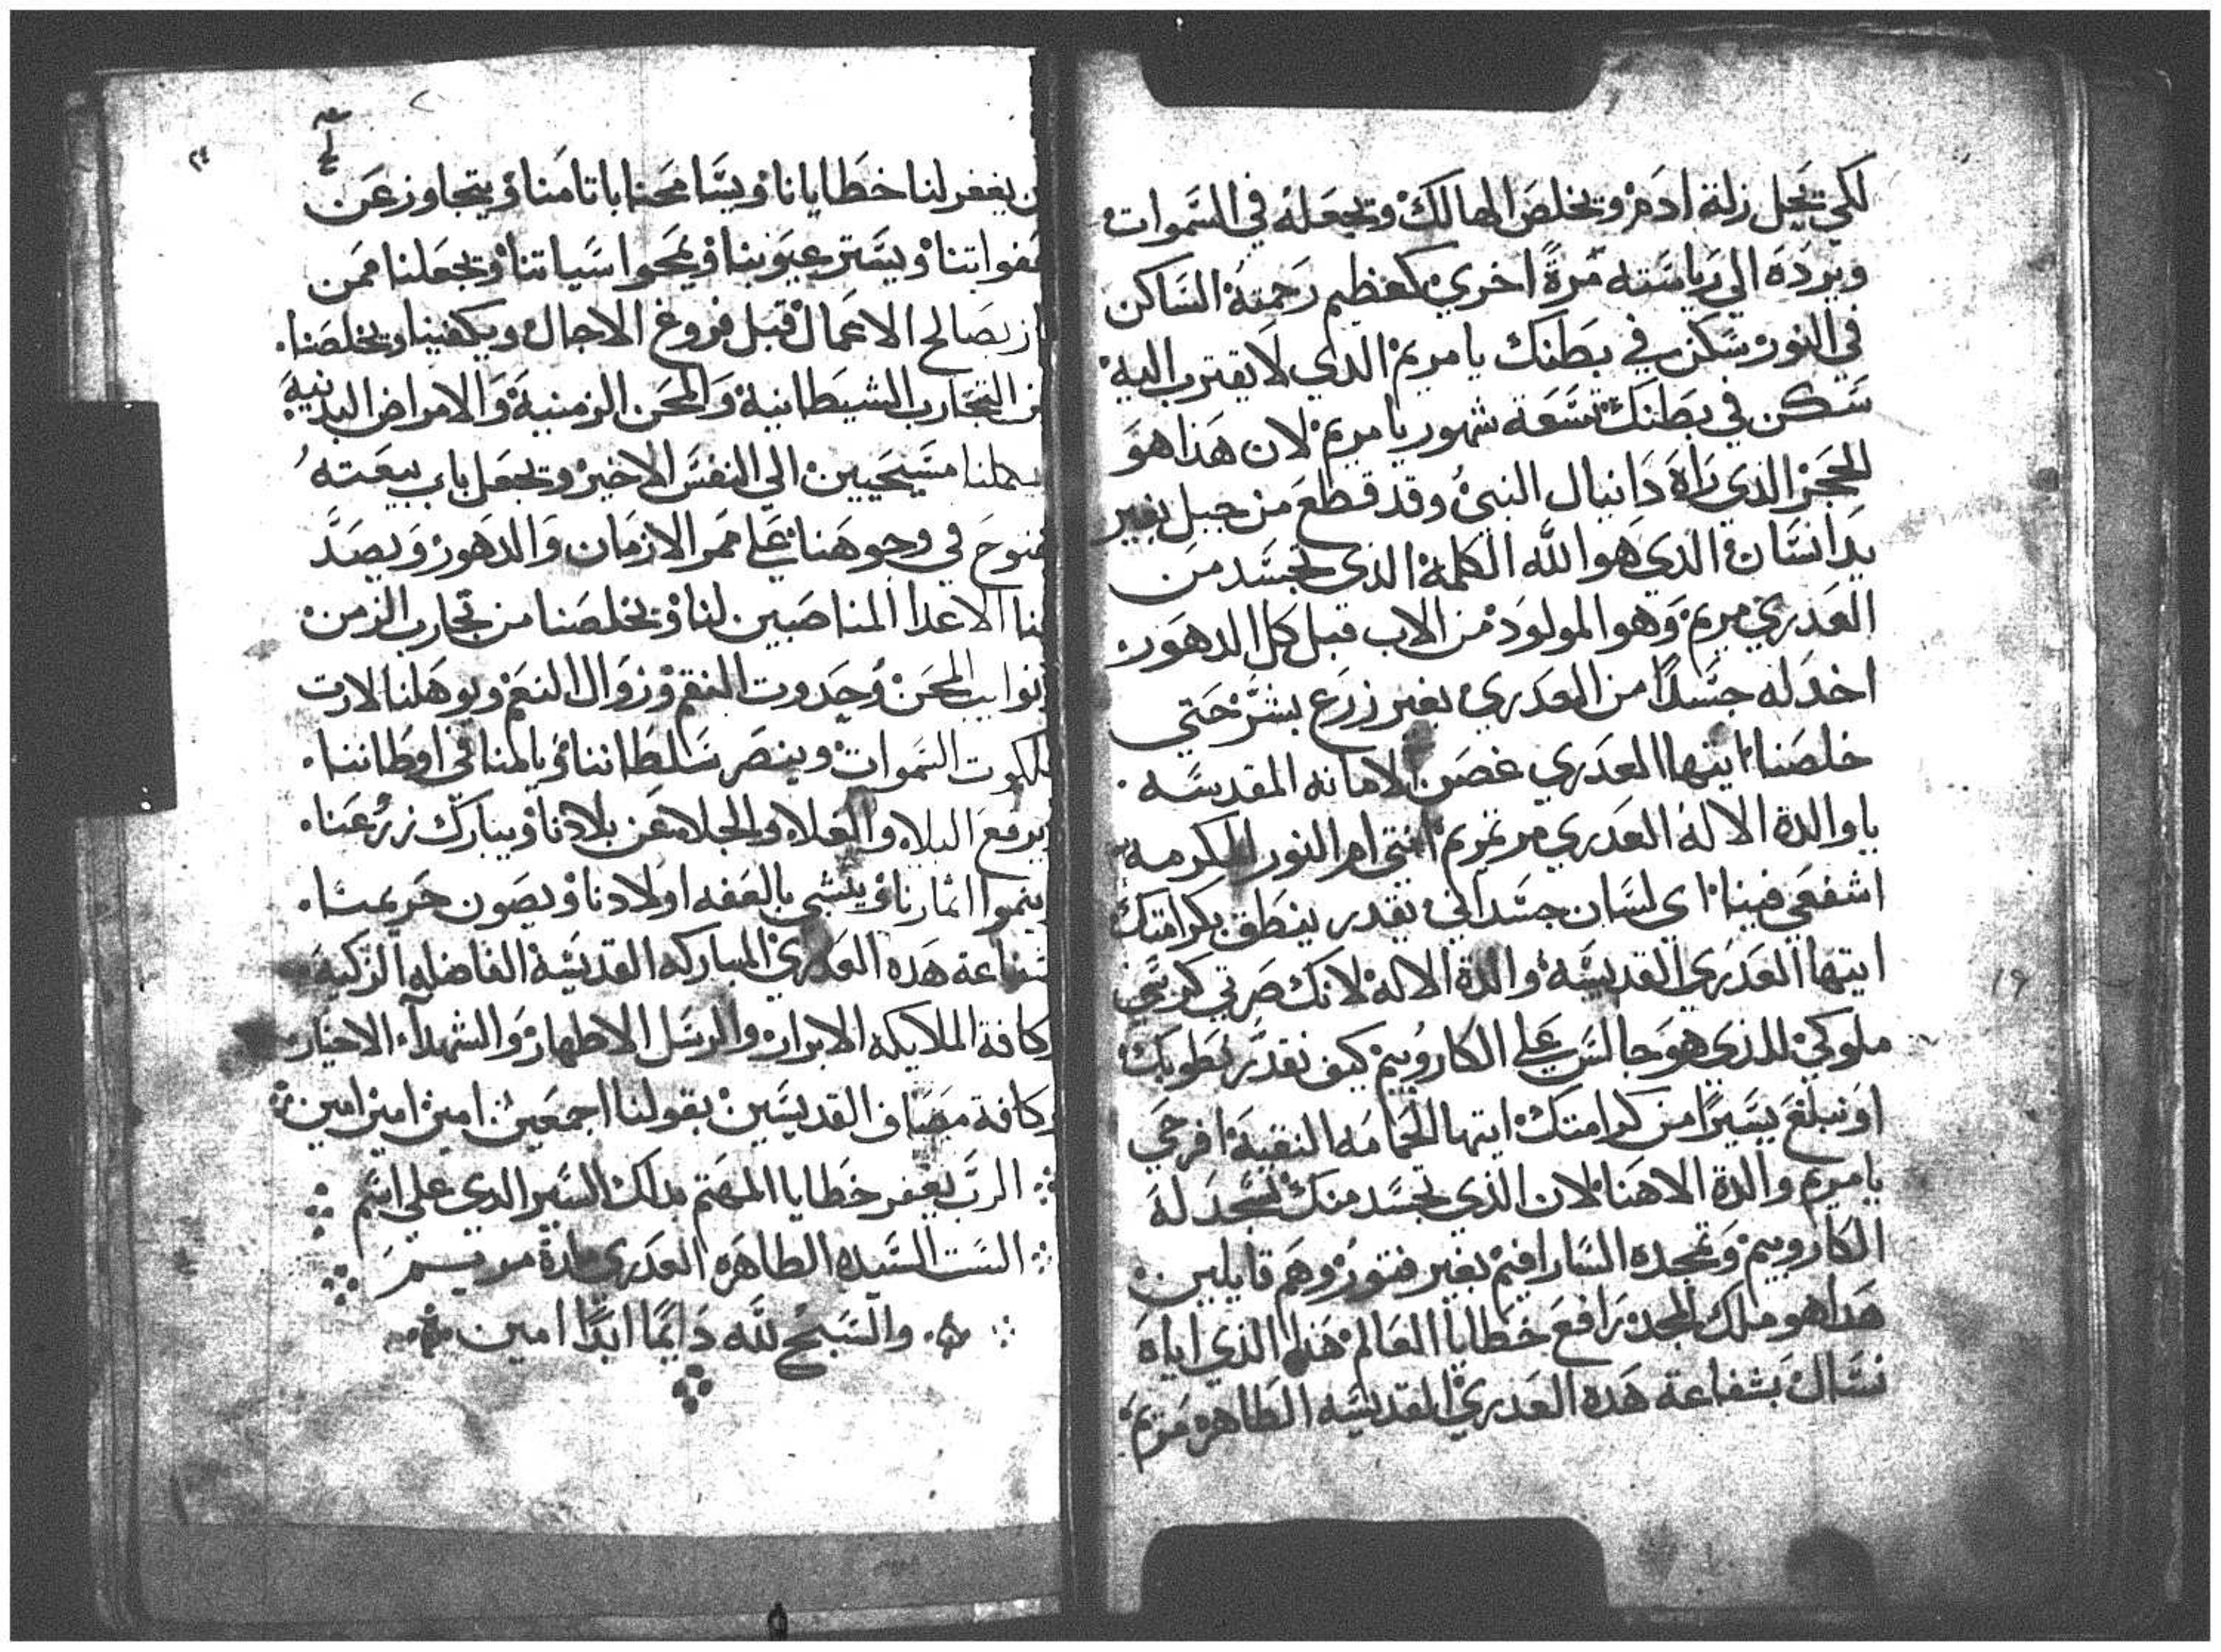 لكي يحل زلة ادم ويخلص الهالك ويجعله في السموات
ويرده الي رياسته مرة اخري كعظيم رحمته الساكن
في النور سكن في بطنك يا مريم الذي لا يقترب اليه
سكن في بطنك تسعه شهور يا مريم لان هذا هو
الحجر الذي راه دانيال النبي وقد قطع من جبل بغير
يد انسان الذي هو الله الكلمة الذي تجسد من
العدري مريم وهو المولود من الاب قبل كل الدهور
اخد له جسدًا من العدري بغير زرع بشر حتي
خلصنا ايتها العدري غصن الامانه المقدسه
يا والدة الاله العدري مرتمريم انتي ام النور المكرمه
اشفعي فينا اي لسان جسداني يقدر ينطق بكرامتك
ايتها العدري القديسه والدة الاله لانك صرتي كرسي
ملوكي للذي هو جالس علي الكاروبيم كيف نقدر نطوبك
او نبلغ يسيرًا من كرامتك ايتها الحمامه النقية افرحي
يا مريم والدة الاهنا لان الذي تجسد منك تسجد له
الكاروبيم وتمجده السارافيم بغير فتور وهم قايلين
هدا هو ملك المجد رافع خطايا العالم هذا الذي اياه
نسال بشفاعة هده العدري المقديسه الطاهره مريم
١٩
ن يغفر لنا خطايانا ويسامحنا باتامنا ويتجاوز عن
هفواتنا ويستر عيوبنا ويمحوا سياتنا ويجعلنا ممن
از بصالح الاعمال قبل فروغ الاجال ويكفينا ويخلصنا
من التجارب الشيطانية والمحن الزمنية والامراض البدنية
مسيحيين الي النفس الاخير ويجعل باب بيعته
مفتوح في وجوهنا علي ممر الازمان والدهور ويصد
عنا الاعدا المناصبين لنا ويخلصنا من تجارب الزمن
ونوايب المحن وحدوت النقم وزوال النعم ويوهلنا لارت
ملكوت السموات وينصر سلطاننا ويالمنا في اوطاننا
ويرفع البلاء والغلاء والجلا عن بلادنا ويبارك زرعنا
وينموا اتمارنا وينشي بالعفه اولادنا ويصون حريمنا
بشفاعة هده العدري المباركه القديسه الفاضله الزكيه
وكافة الملايكه الابرار والرسل الاطهار والشهدآء الاخيار
وكافة مصاف القديسين بقولنا اجمعين امين امين امين
الرب يغفر خطايا المهتم بدلك السير الدي علي اسم
الست السيده الطاهره العدري مارة مريم
والسبح لله دايمًا ابدًا امين